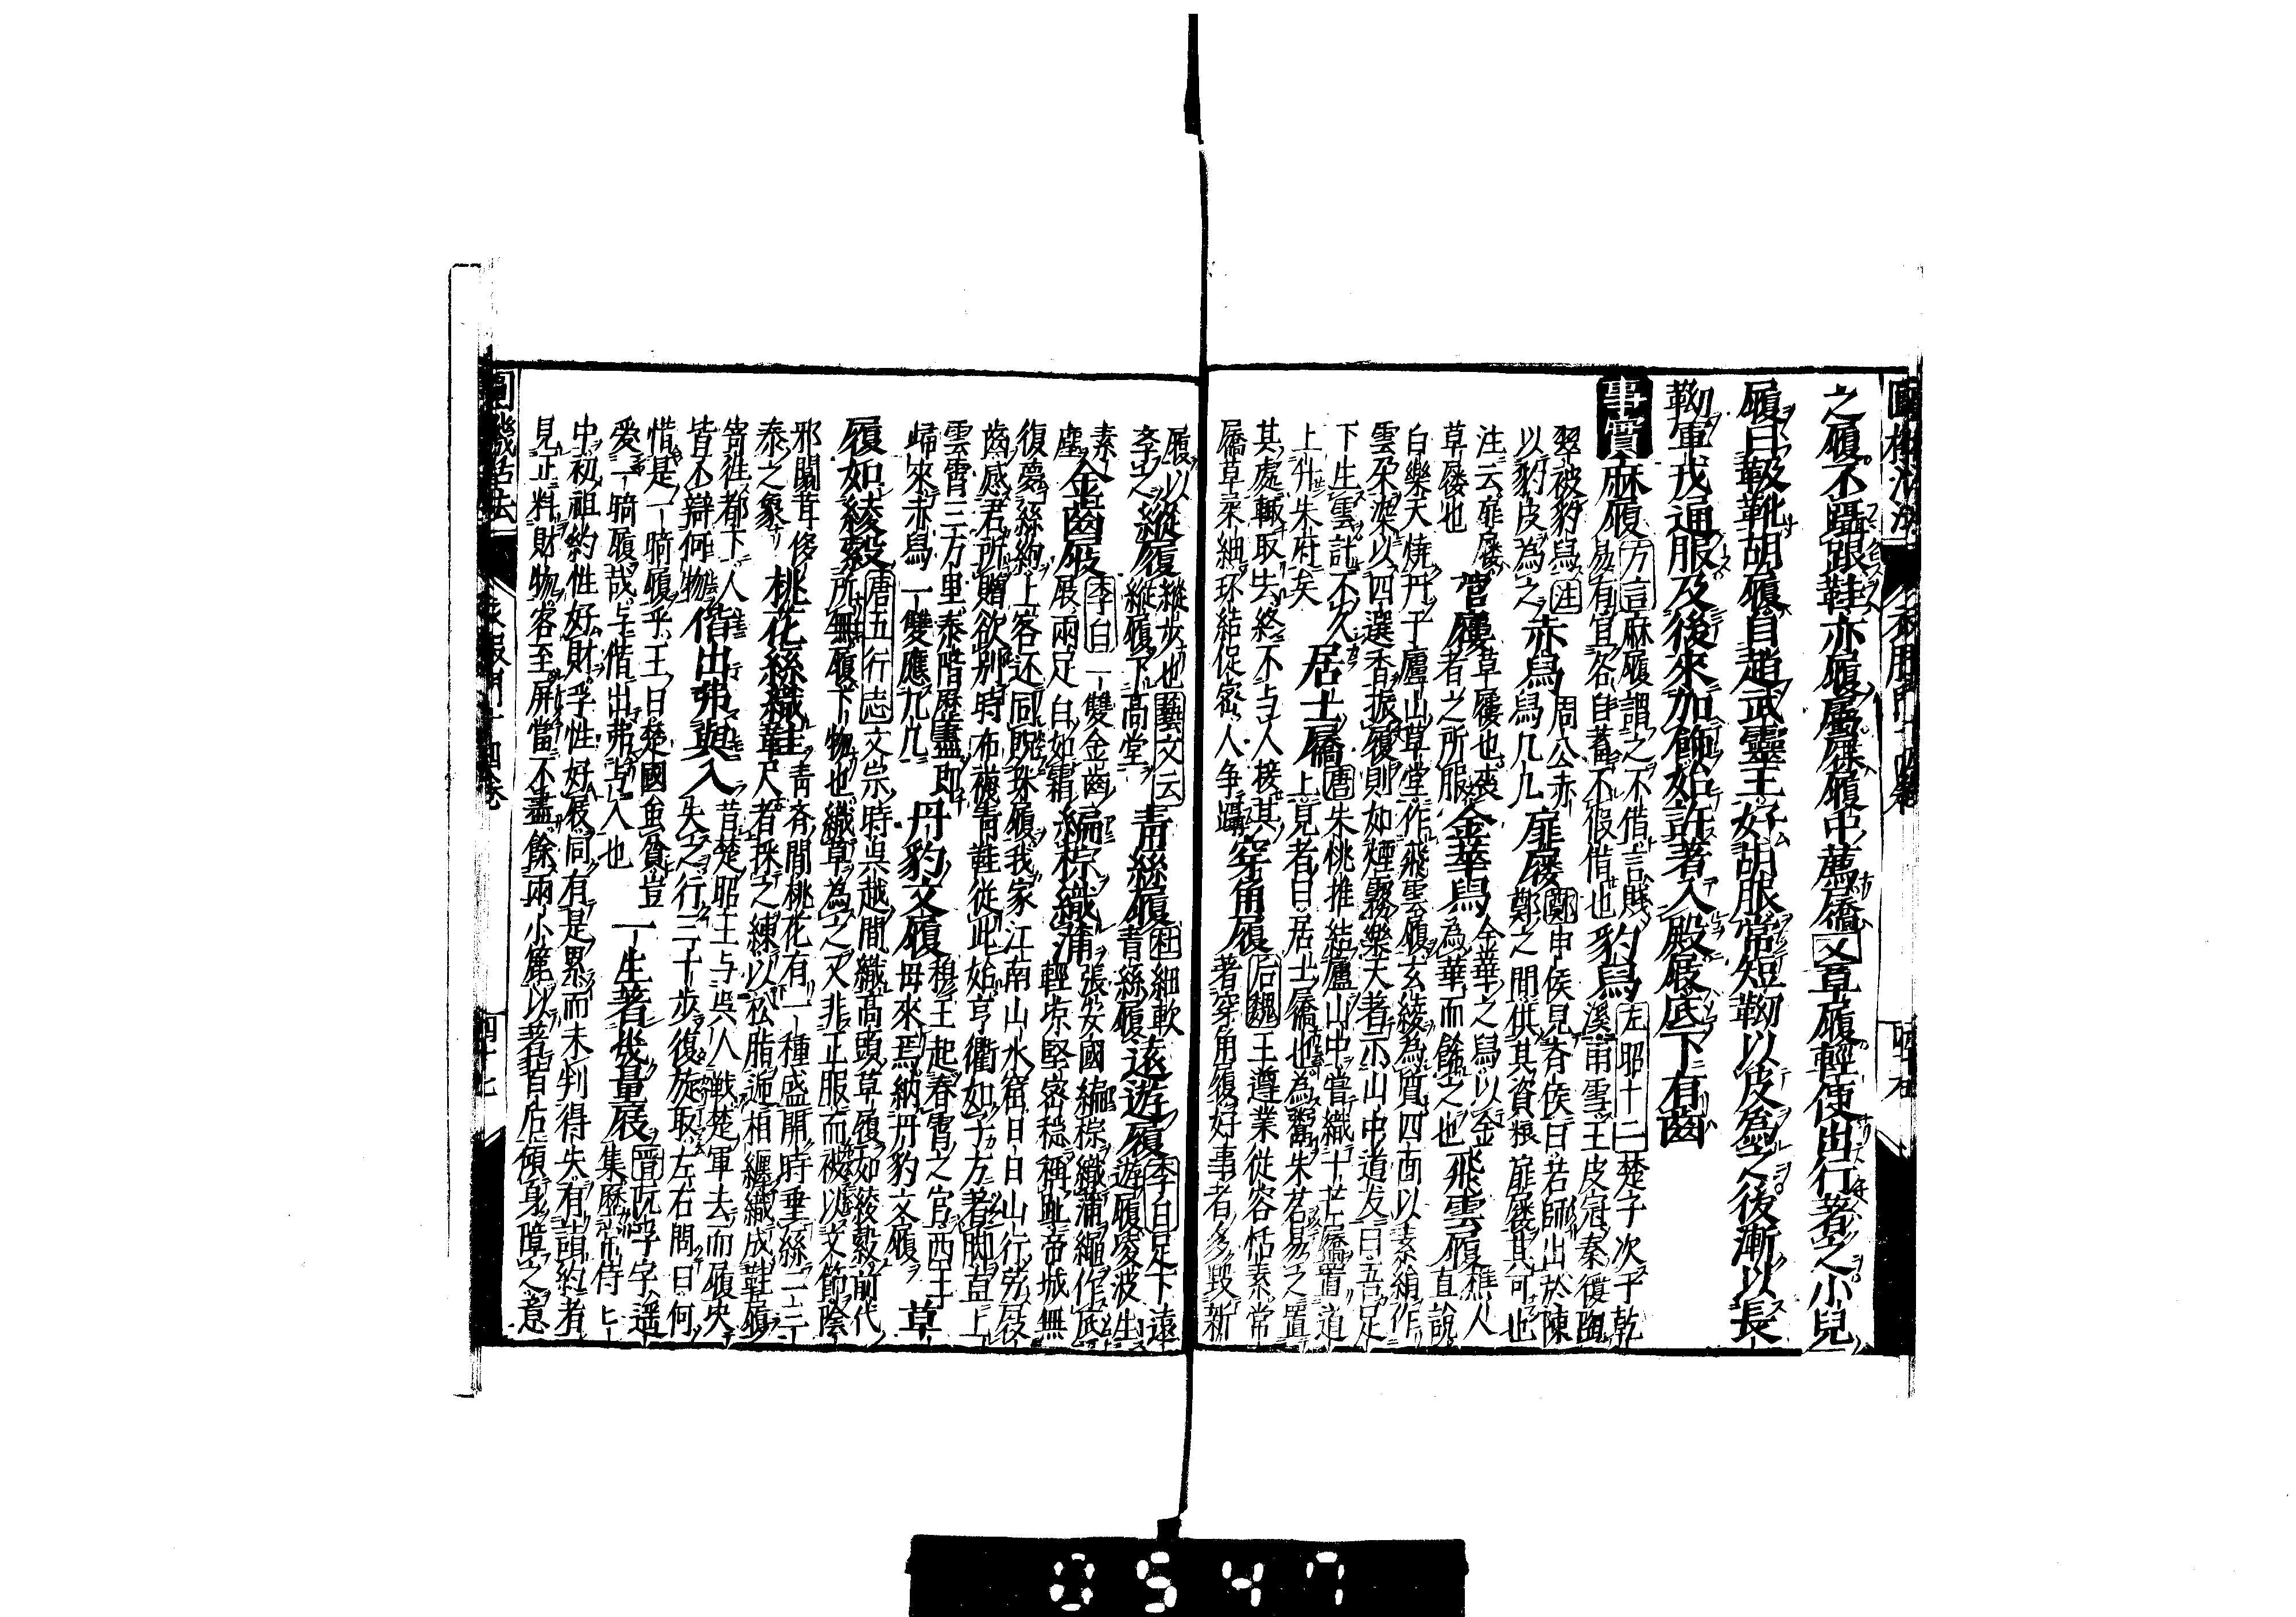 之履不躡跟鞋亦履屬屧履中薦屩又草履輕便出行著之小兒
履曰靸靴胡履自趙武靈王好胡服常短靿以皮為之後漸以長
靿軍戎通服及後來加飾始許著入殿屐底下有齒
事實
麻履
方言麻履謂之不借言賤
易有宜各自蓄不假借也
豹舄
左昭十二楚子次于乾
溪雨雪王皮冠秦復陶
翠被豹舄注
以豹皮為之
赤舄
周公赤
舄几几
扉屨
鄭申侯見齊侯曰若師出於陳
鄭之間供其資粮扉屨其可也
注云扉屨
草屨也
菅屨
草屨也喪
者之所服
金華舄
金華之舄以金
為華而餙之也
飛雲履
樵人
直說
白樂天燒丹于廬山草堂作飛雲履玄綾為質四面以素綃作
雲朶染以四選香振履則如煙霧樂天著示山中道友曰吾足
下生雲計不久
上升朱府矣
居士屩
唐朱桃推結廬山中嘗織十芒屩置道
上見者曰居士屩也為鬻朱茗易之置
其處輙取去終不与人接其
屩草柔細环結促密人争躡
穿角履
后魏王遵業從容恬素常
著穿角履好事者多毀新
履以
孝之
縱履
縱步也藝文云
縱履下高堂
青絲履
杜細軟
青絲履
遠遊履
李白足下遠
遊履凌波生
素
塵
金齒屐
李白一雙金齒
屐兩足白如霜
編棕織蒲
張安國編棕織蒲繩作底
輕凉堅密稳稱趾帝城無
復夢絲絇上客还同貺珠履我家江南山水窟日日山行劳屐
齒感君所贈欲別時布襪青鞋従此始亨衢如今方著脚直上
雲霄三万里泰階歷盡即
歸來赤舄一雙應几几
丹豹文履
穆王起春霄之宮西王
母來焉納丹豹文履
草
履如綾縠
唐五行志文宗時吳越間織高頭草履如綾縠前代
所無履下物也織草為之又非正服而被以文節陰
邪闒茸侈
泰之象
桃花絲織鞋
青齊間桃花有一種盛開時垂絲二三
尺者採之練以松脂逓相纒織成鞋履
寄徃都下人
皆不辯何物
偕出弗與入
昔楚昭王与吳人戦楚軍去而履央
失之行三十步復旋取左右問曰何
惜是一䠋履乎王曰楚國虽貧豈
愛一䠋履哉与偕出弗与入也
一生著幾量屐
晋阮孚字遥
集歷侍
中初祖約性好財孚性好屐同有是累而未判得失有詣約者
見正料財物客至屏當不盡餘兩小簏以著背后傾身障之意
圓機活法
衣服門十四卷
四十七
0547